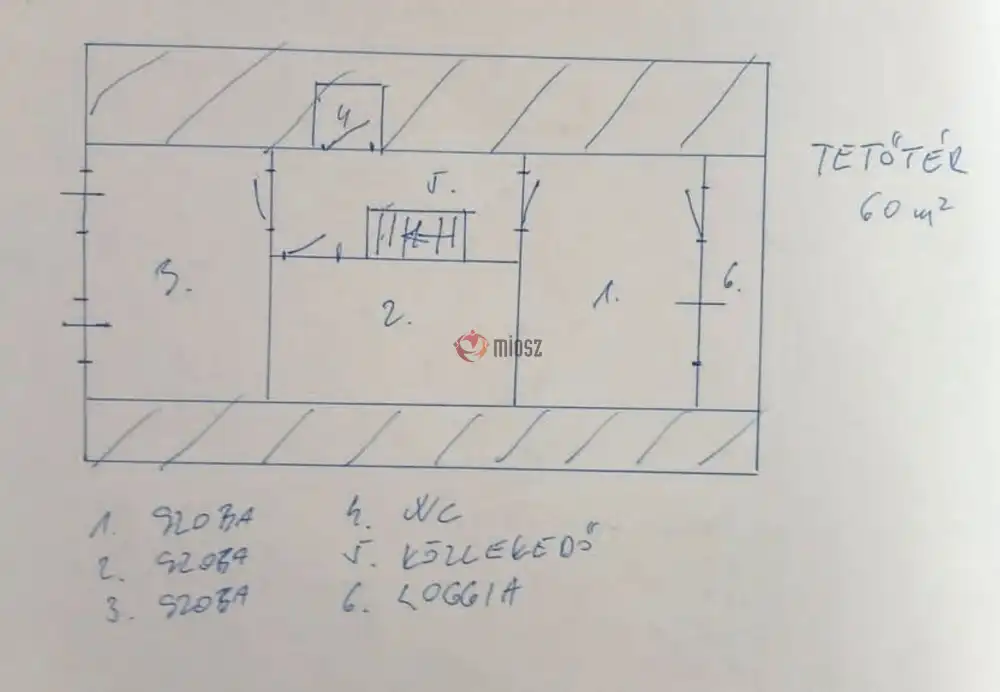 4
5.
TETŐTÉR
60 m²
3.
2.
1.
6.
miosz
1. SZOBA
2. SZOBA
3. SZOBA
4. WC
5. KÖZLEKEDŐ
6. LOGGIA